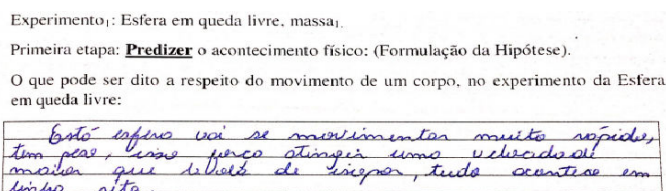 Experimento₁: Esfera em queda livre, massa₁.
Primeira etapa: Predizer o acontecimento físico: (Formulação da Hipótese).
O que pode ser dito a respeito do movimento de um corpo, no experimento da Esfera
em queda livre:
Está esfera vai se movimentar muito rápido,
tem peso, isso atingir uma velocidade
maior que de, tudo acontece em
linha